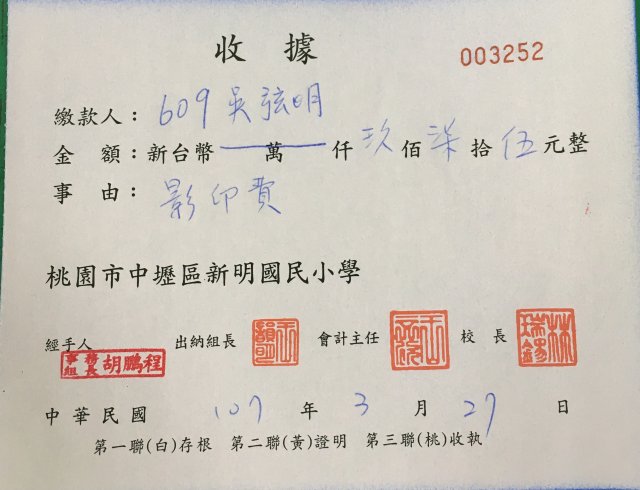 收 據
003252
繳款人：609 吳弦明
金 額：新台幣 萬 仟 玖 佰 柒 拾 伍 元整
事 由：影印費
桃園市中壢區新明國民小學
經手人 出納組長 會計主任 校 長 林瑞錫
事務組長 胡鵬程
中華民國 107 年 3 月 27 日
第一聯(白)存根 第二聯(黃)證明 第三聯(桃)收執